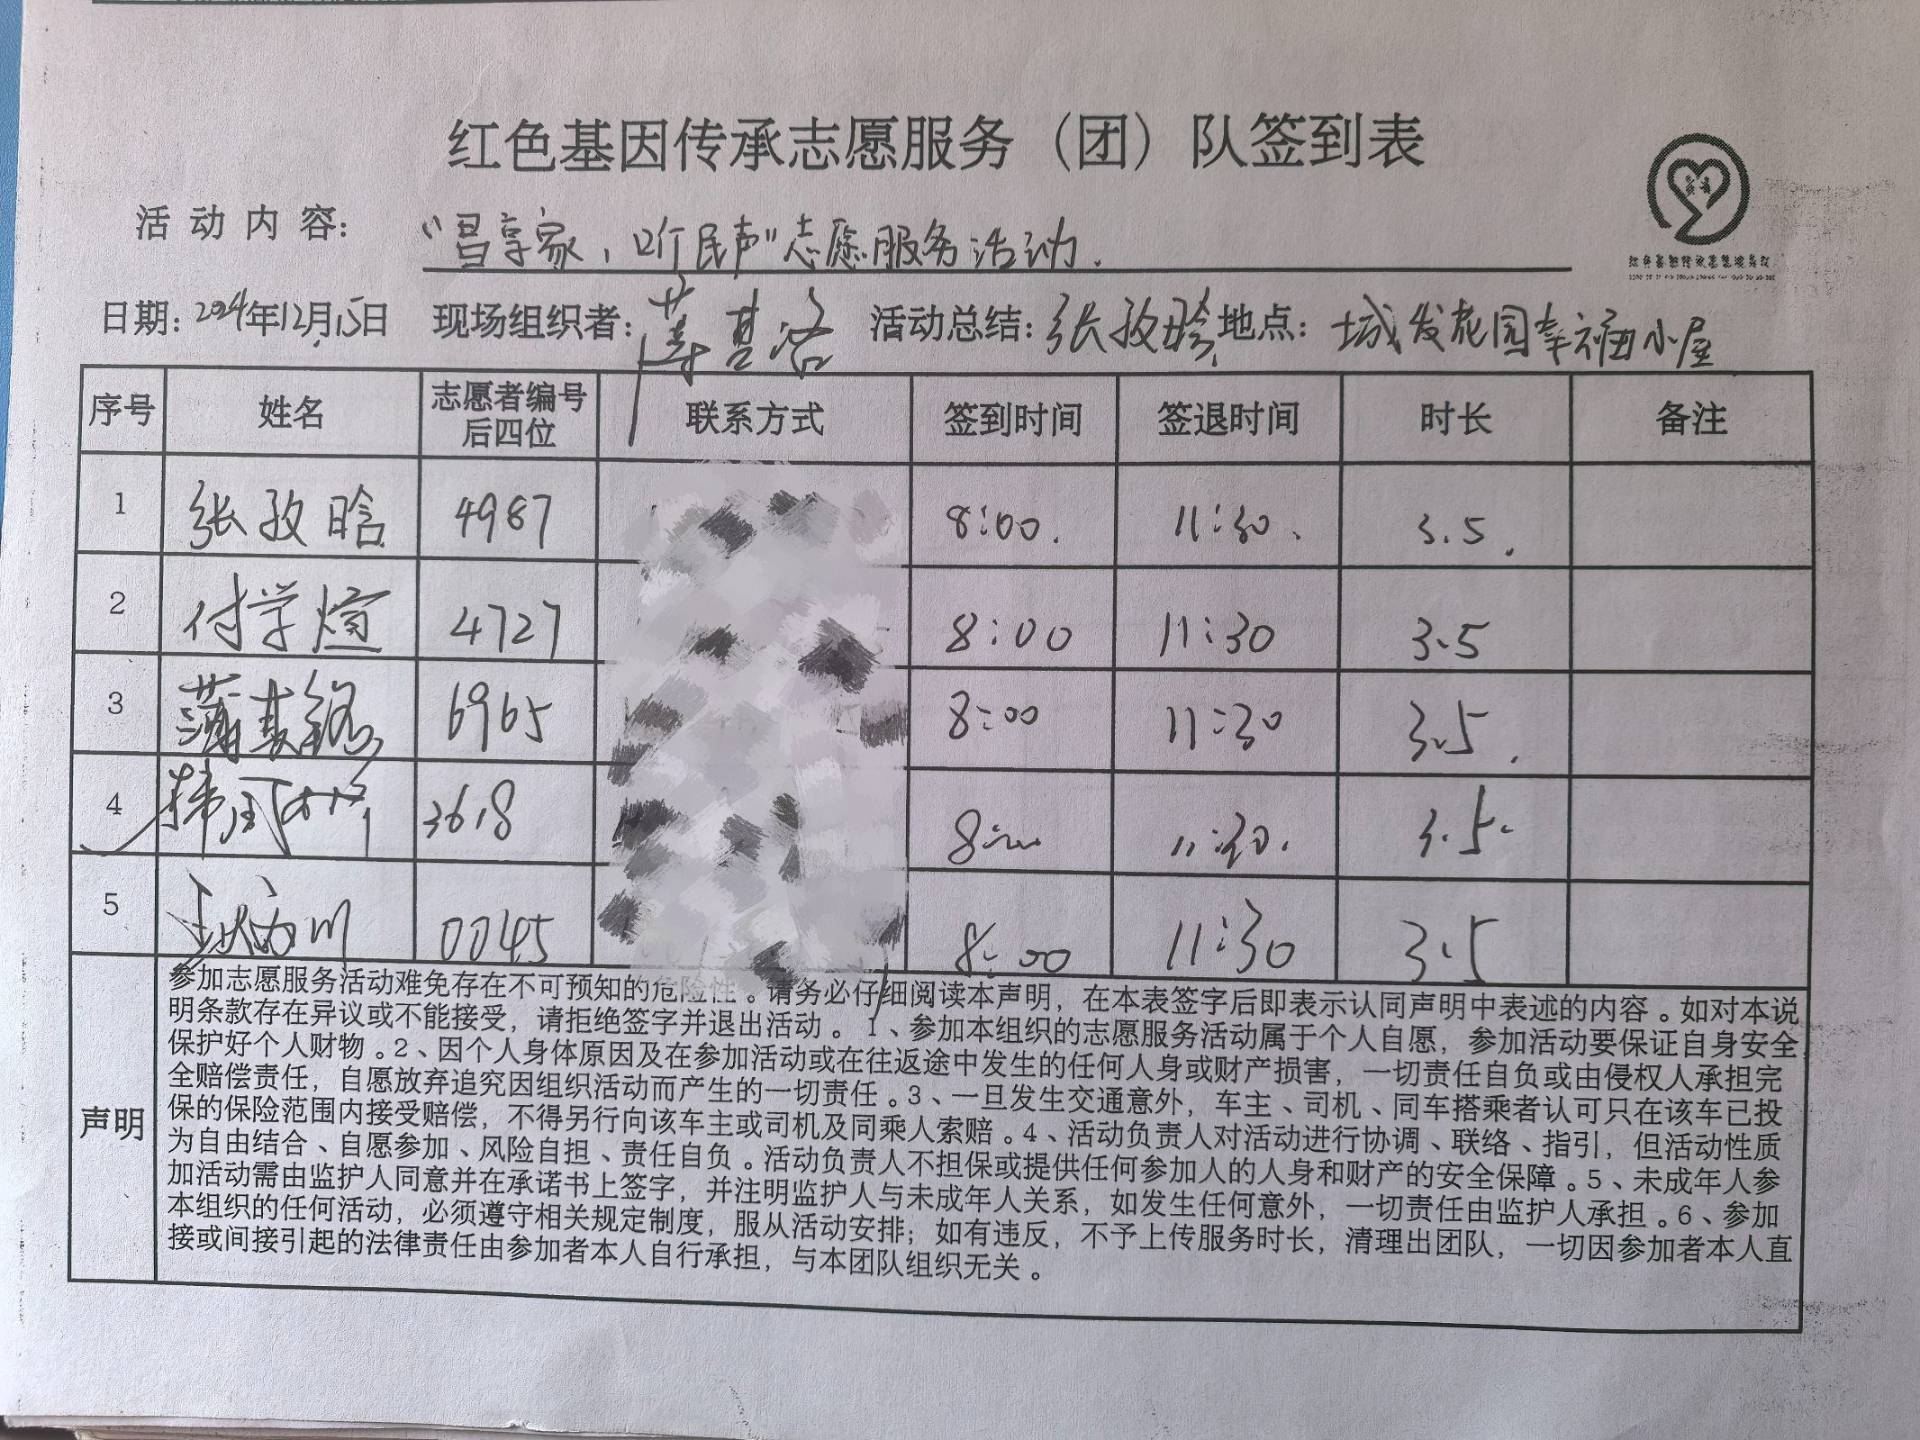 红色基因传承志愿服务（团）队签到表
活动内容：“昌享家，听民声”志愿服务活动.
日期：2024年12月15日 现场组织者： 活动总结：张孜晗 地点：城发花园幸福小屋
序号 姓名 志愿者编号后四位 联系方式 签到时间 签退时间 时长 备注
1 张孜晗 4987 8:00. 11:30. 3.5.
2 付学煊 4727 8:00 11:30 3.5
3 6965 8:00 11:30 3.5.
4 3618 8:00 11:30. 3.5.
5 0045 8:00 11:30 3.5
声明
参加志愿服务活动难免存在不可预知的危险性。请务必仔细阅读本声明，在本表签字后即表示认同声明中表述的内容。如对本说
明条款存在异议或不能接受，请拒绝签字并退出活动。1、参加本组织的志愿服务活动属于个人自愿，参加活动要保证自身安全
保护好个人财物。2、因个人身体原因及在参加活动或在往返途中发生的任何人身或财产损害，一切责任自负或由侵权人承担完
全赔偿责任，自愿放弃追究因组织活动而产生的一切责任。3、一旦发生交通意外，车主、司机、同车搭乘者认可只在该车已投
保的保险范围内接受赔偿，不得另行向该车主或司机及同乘人索赔。4、活动负责人对活动进行协调、联络、指引，但活动性质
为自由结合、自愿参加、风险自担、责任自负。活动负责人不担保或提供任何参加人的人身和财产的安全保障。5、未成年人参
加活动需由监护人同意并在承诺书上签字，并注明监护人与未成年人关系，如发生任何意外，一切责任由监护人承担。6、参加
本组织的任何活动，必须遵守相关规定制度，服从活动安排；如有违反，不予上传服务时长，清理出团队，一切因参加者本人直
接或间接引起的法律责任由参加者本人自行承担，与本团队组织无关。